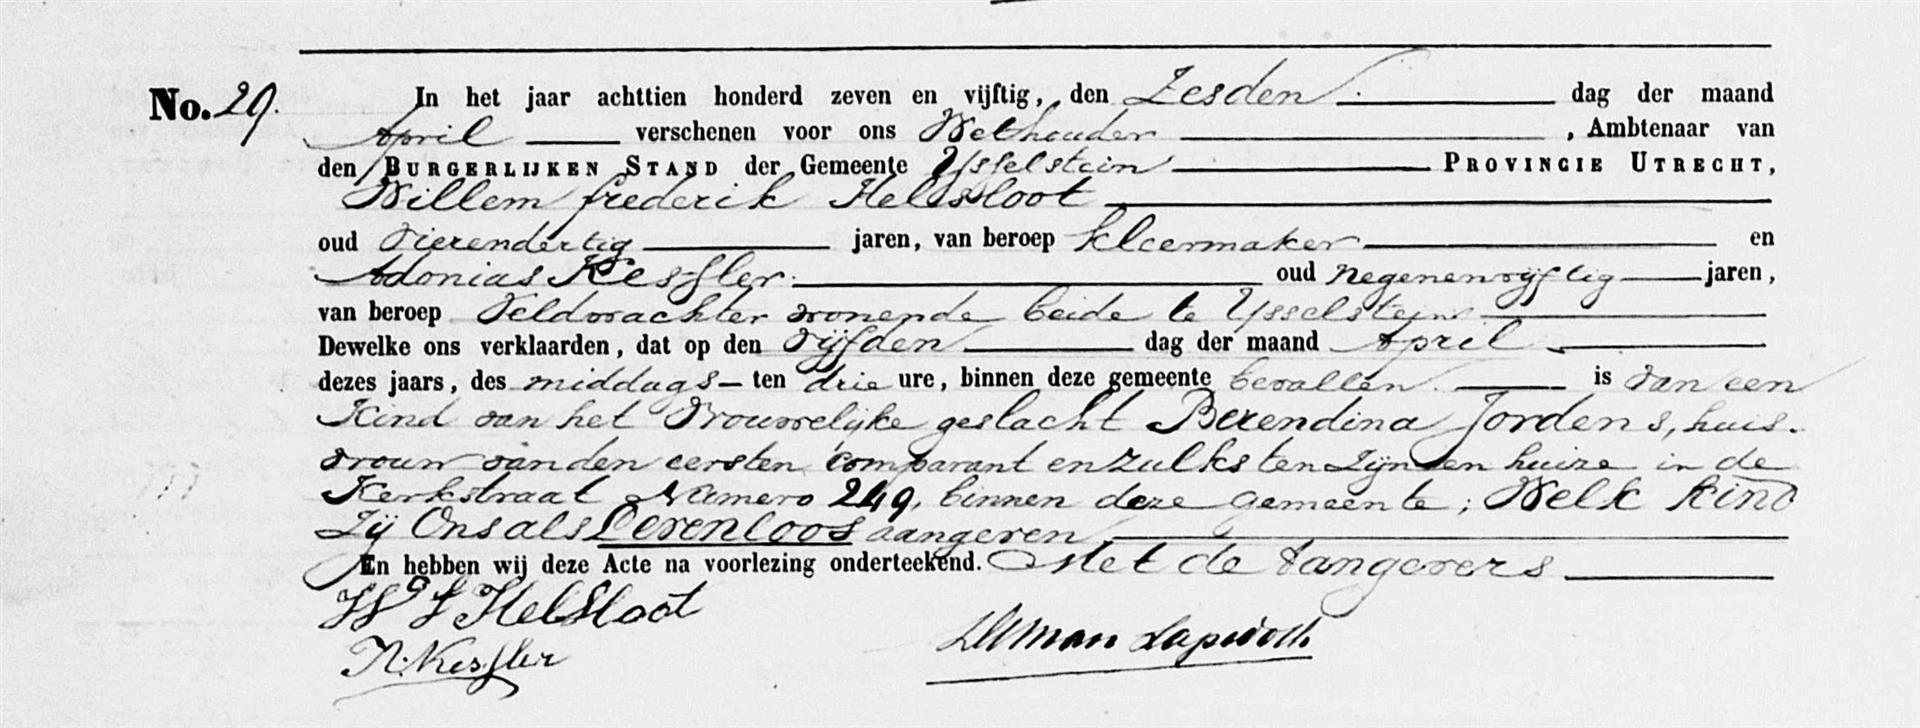 No. 29. In het jaar achttien honderd zeven en vijftig, den Zesden dag der maand
April verschenen voor ons Wethouder, Ambtenaar van
den BURGERLIJKEN STAND der Gemeente IJsselstein PROVINCIE UTRECHT,
Willem frederik Helsloot
oud Vierendertig jaren, van beroep kleermaker en
Adonias Kessler oud negenenvijftig jaren,
van beroep Veldwachter wonende beide te IJsselstein
Dewelke ons verklaarden, dat op den Vijfden dag der maand April
dezes jaars, des middags ten drie ure, binnen deze gemeente bevallen is van een
Kind van het Vrouwelijke geslacht Berendina Jordens, huis-
vrouw van den eersten comparant en zulks ten zijnen huize in de
Kerkstraat Numero 249, binnen deze gemeente; Welk kind
Zij Ons als Levenloos aangeven
En hebben wij deze Acte na voorlezing onderteekend. Met de Aangevers
W F Helsloot
N. Kessler